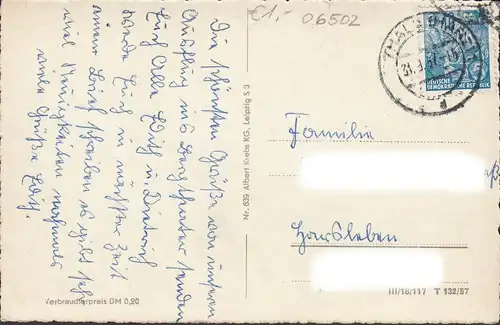 €1,- 06502
Die schönsten Grüße von unserem
Ausflug ins Bergtheater senden
Euch Alle
werde Euch in nächster Zeit
einen Brief schreiben es gibt sehr
viel Neuigkeiten nochmals
viele Grüße
Nr. 639 Albert Krebs KG, Leipzig S 3
DEUTSCHE
DEMOKRATISCHE REPUBLIK
Familie
Harsleben
III/18/117 T 132/57
Verbraucherpreis DM 0,20